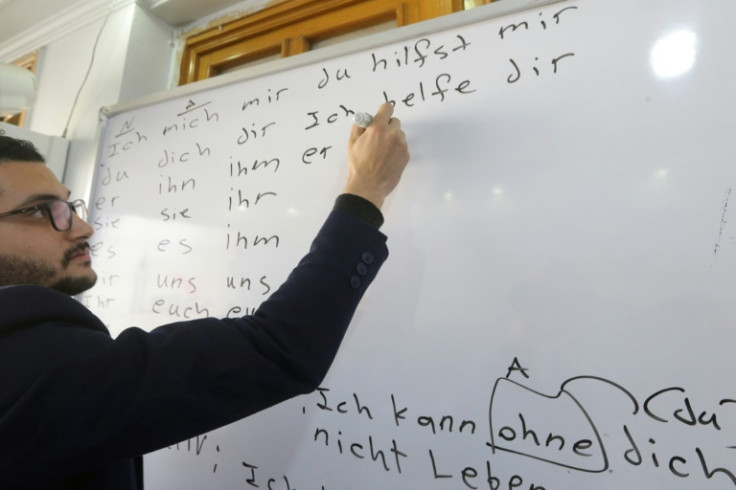 N A
Ich mich mir du hilfst mir
du dich dir Ich helfe dir
er ihn ihm er
sie sie ihr
es es ihm
uns uns
Ihr euch
A
Ich kann ohne dich (du
nicht Leben
Ich